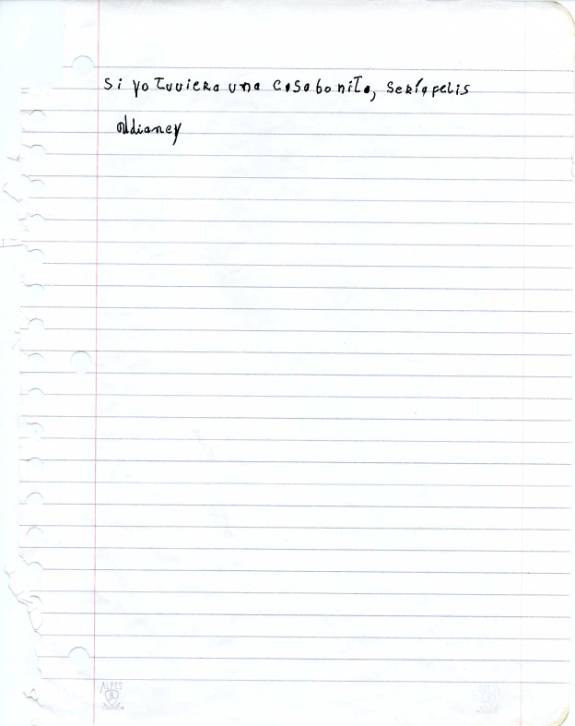 Si yo tuviera una casa bonita, Sería pelis
Aldianey
ALPES